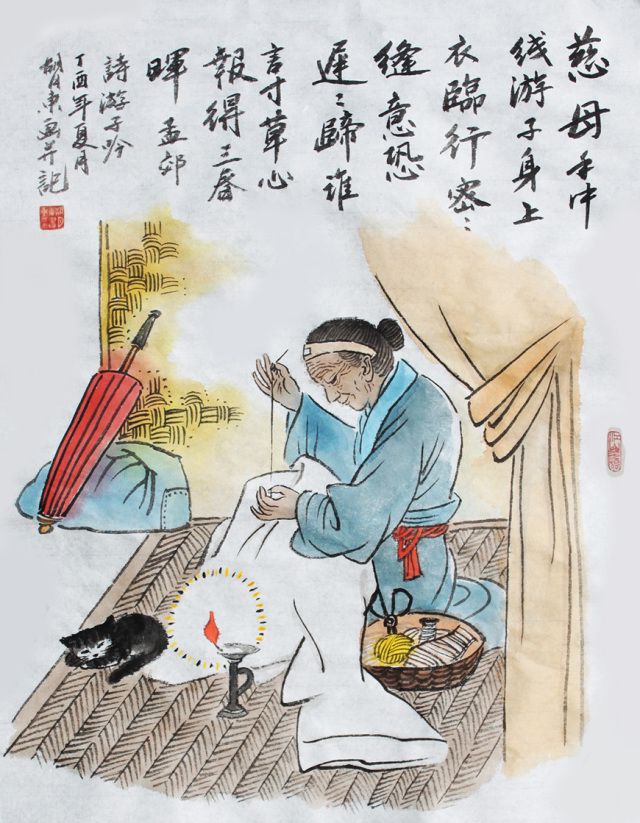 慈母手中
线游子身上
衣臨行密〻
縫意恐
遲〻歸谁
言寸草心
報得三春
暉 孟郊
詩游子吟
丁酉年夏月
画并記